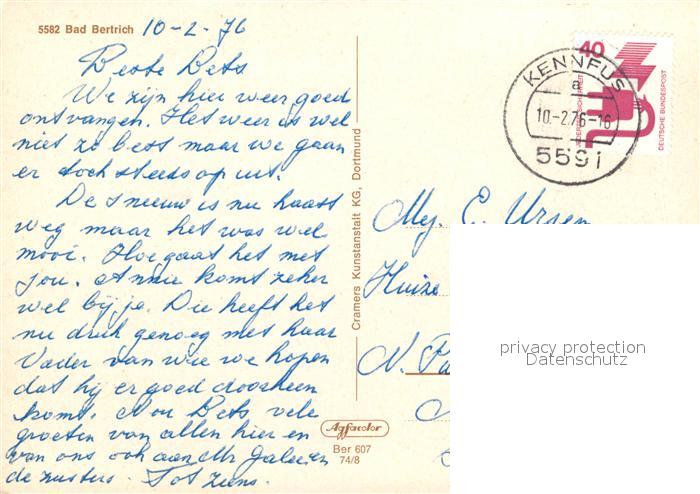 5582 Bad Bertrich 10-2-76
Beste Bets
We zijn hier weer goed
ontvangen. Het weer is wel
niet zo best maar we gaan
er toch steeds op uit.
De sneeuw is nu haast
weg maar het was wel
mooi. Hoe gaat het met
jou. Annie komt zeker
wel bij je. Die heeft het
nu druk genoeg met haar
Vader van wie we hopen
dat hij er goed doorheen
komt. Nou Bets vele
groeten van allen hier en
van ons ook aan Mr Galeien
de zusters. Tot ziens.
Cramers Kunstanstalt KG, Dortmund
Agfacolor
Ber 607
74/8
40
JEDERZEIT SICHERHEIT
DEUTSCHE BUNDESPOST
KENNFUS
a
10.-2.76-16
5591
Mej. E. Ursen
Huize
N. Pa
privacy protection
Datenschutz